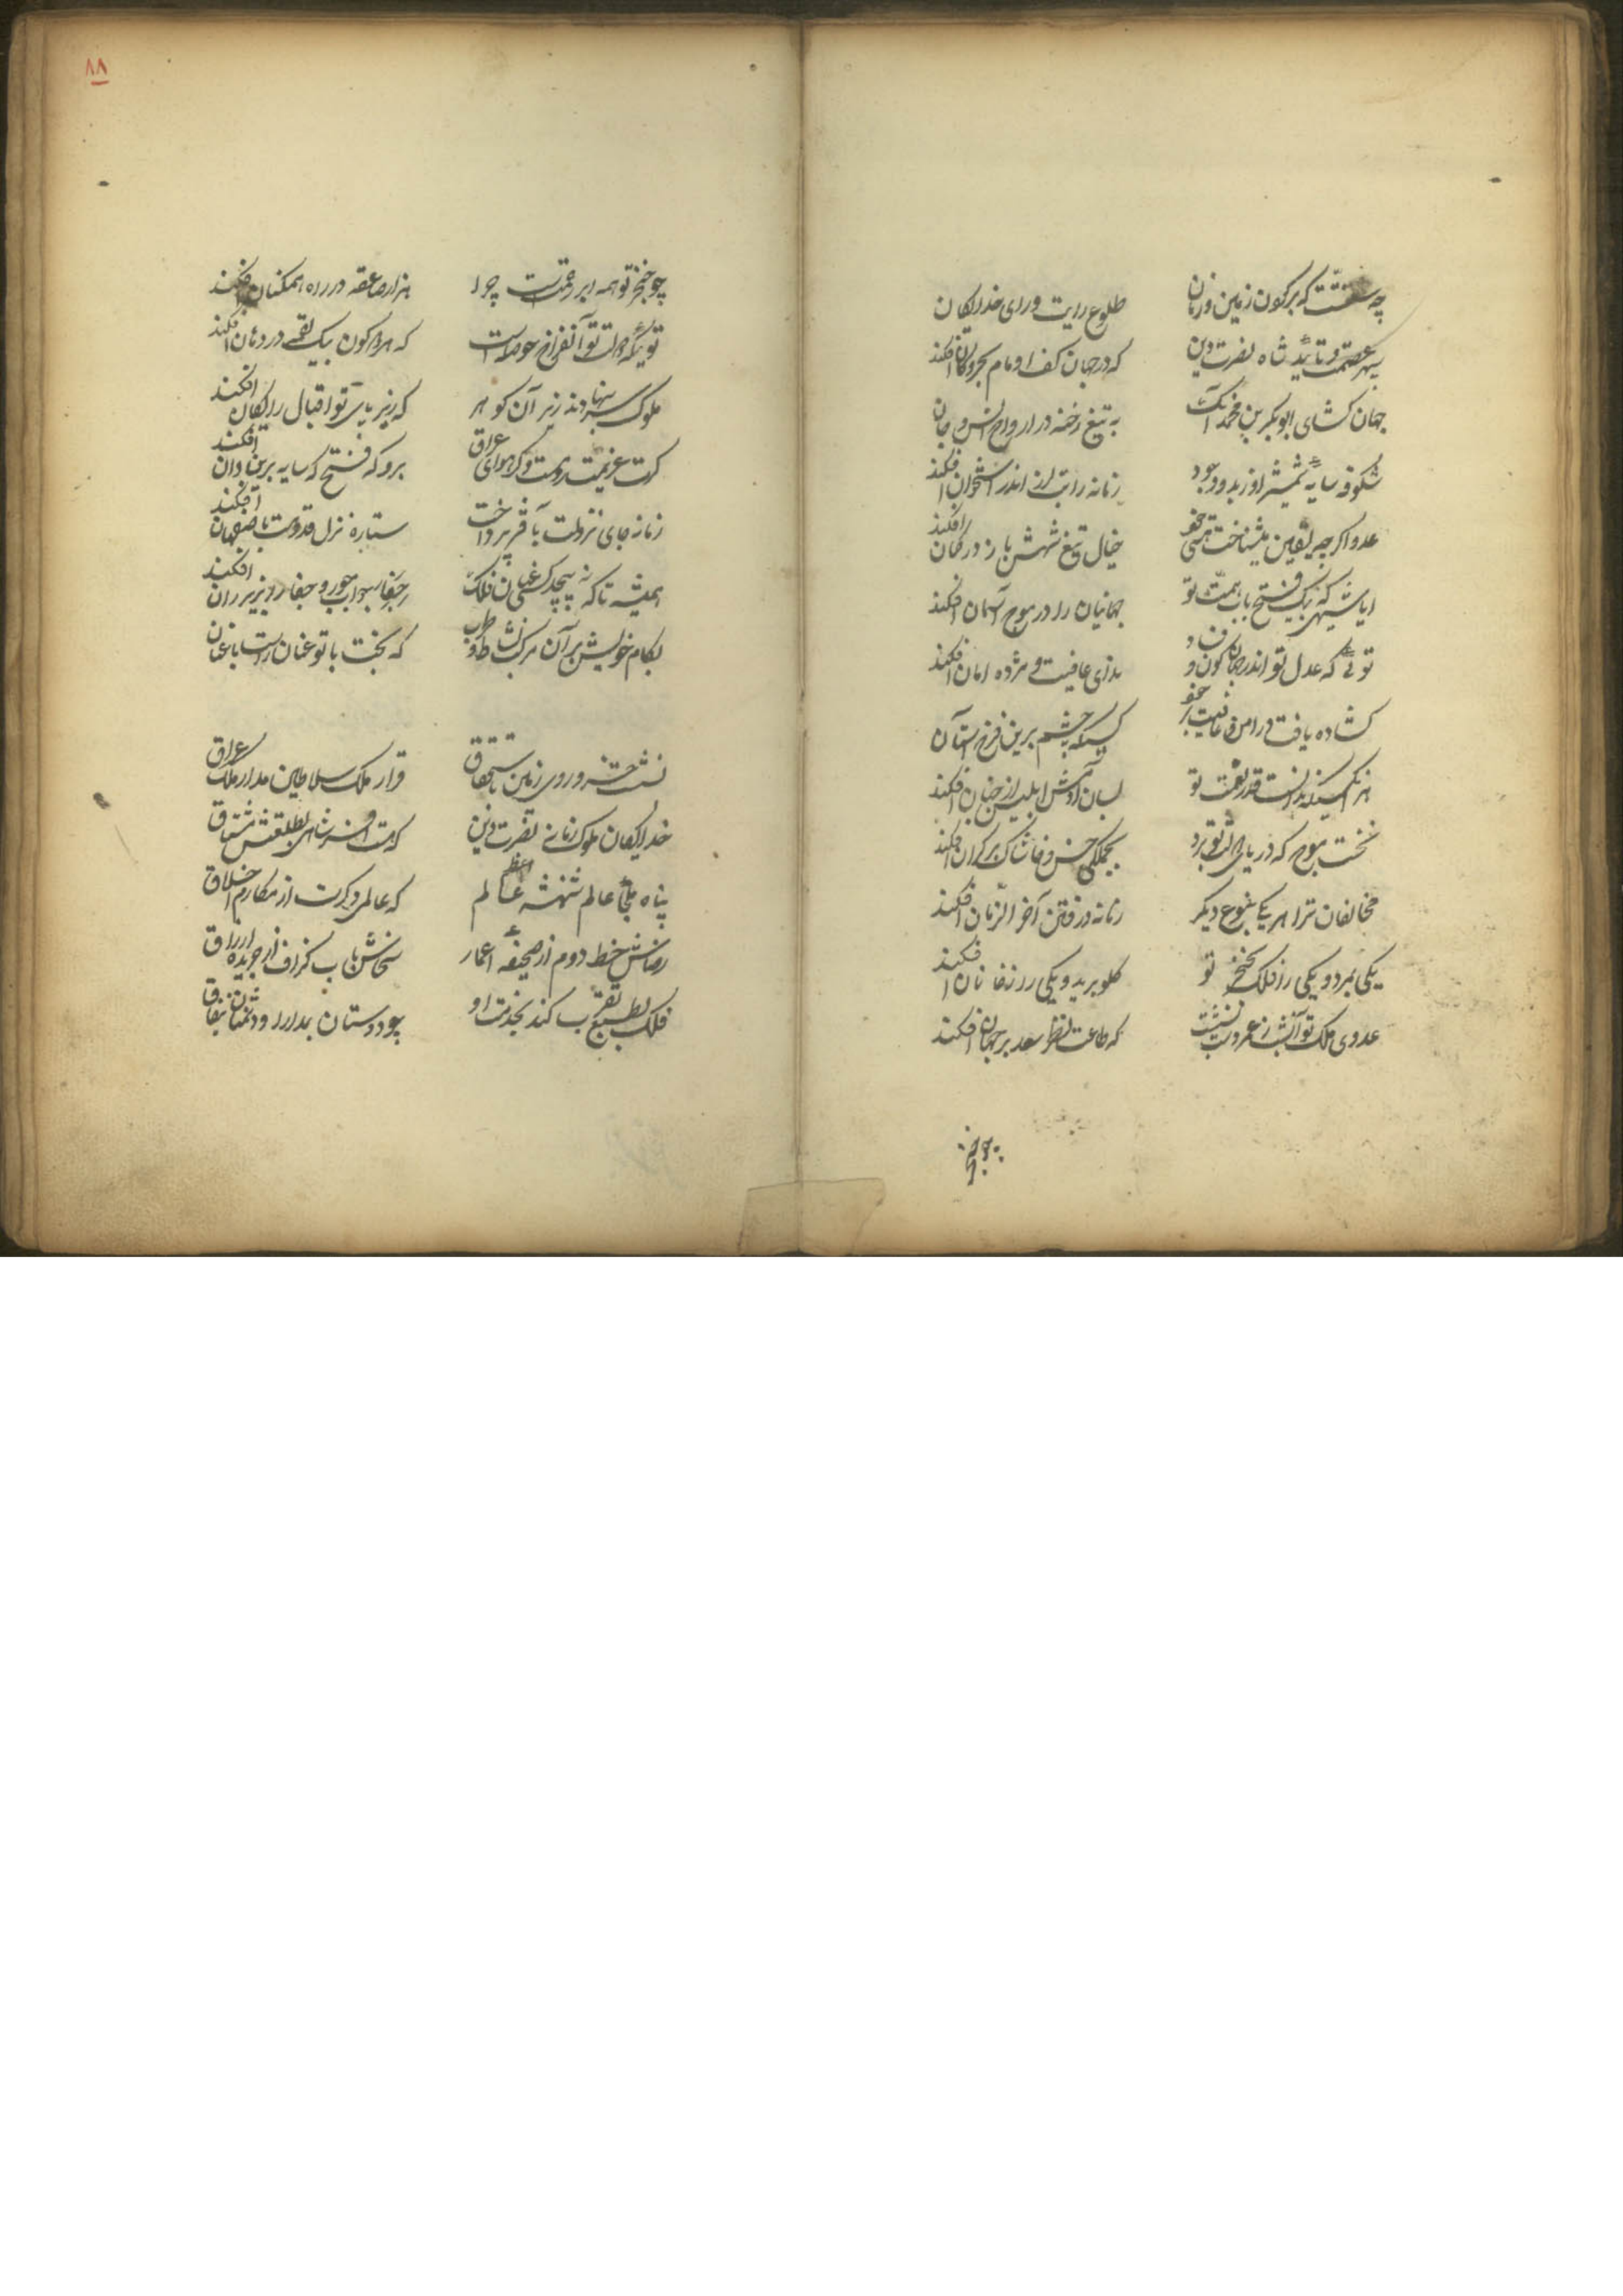 طلوع رایت و رای خدایگان
که بر کون زمین و زمان
سپهر عصمت و تایید شاه نصرت دین
که در جهان کف او نام بحر و کان افکند
جهان کشای ابوبکر بن محمد آنک
به تیغ رخنه در ارواح انس و جان
شکوفه سایه شمشیر او
زمانه را تب لرز اندر استخوان افکند
عدو اگر چه یقین می شناخت
خیال تیغ شهش باز در گمان افکند
ایا شهی که یک فتح باب همت تو
جهانیان را در موج آسمان افکند
تویی که عدل تو اندر جهان کون و فساد
ندای عافیت و مژده امان افکند
کشاده یافت در امن و عافیت
کسیکه چشم برین فرخ آستان
هر آنکسیکه ندانست قدر نعمت تو
بسان آدمش ابلیس از جنان افکند
نخست موج که دریای دولت تو بزد
بجملگی خس و خاشاک بر کران افکند
مخالفان ترا هر یکی بنوع دیگر
زمانه در فتن آخر الزمان افکند
یکی بمرد و یکی را فلک بخنجر تو
گلو برید و یکی را ز خانمان افکند
عدوی ملک تو آتش ز عمر دست بشست
که طاعت نظر سعد بر جهان افکند
۸۸
چو خنجر تو همه ابر رحمتست چرا
هزار صاعقه در راه همکنان افکند
تویی که دولت تو آنفراخ حوصله است
که هر دو کون بیک لقمه در دهان افکند
ملوک سر بنهادند زیر آن گوهر
که زیر پای تو اقبال رایگان افکند
گرت عزیمت رومست و گر هوای عراق
برو که فتح که سایه برین و ان افکند
زمانه جای نزولت بآقر پرداخت
ستاره نزل قدومت باصفهان افکند
همیشه تا که نپیچد کسی عنان فلک
بکام خویش بر آن مرکب نشاط و طرب
که بخت با تو عنان راست باعنان
نشست خسرو روی زمین باستحقاق
قرار ملک سلاطین مدار ملک عراق
خدایگان ملوک زمانه نصرت دین
که هست افسر شاهی بطلعتش مشتاق
پناه ملجأ عالم شهنشه اعظم
که عالمی دگرست از مکارم اخلاق
رضاش خط دوم از صحیفه اعمار
سخاش باب گزاف از جریده ارزاق
فلک بطبع تقرب کند بخدمت او
چو دوستان بمدارا و دشمنان بنفاق